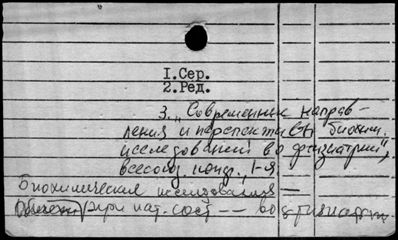 I.Сер.
2.Ред.
3. „Современные направ-
ления и перспективы биохим.
исследований во фтизиатрии",
всесоюз. конф., 1-я.
Биохимические исследования —
при пат. сост. —— во фтизиатр.